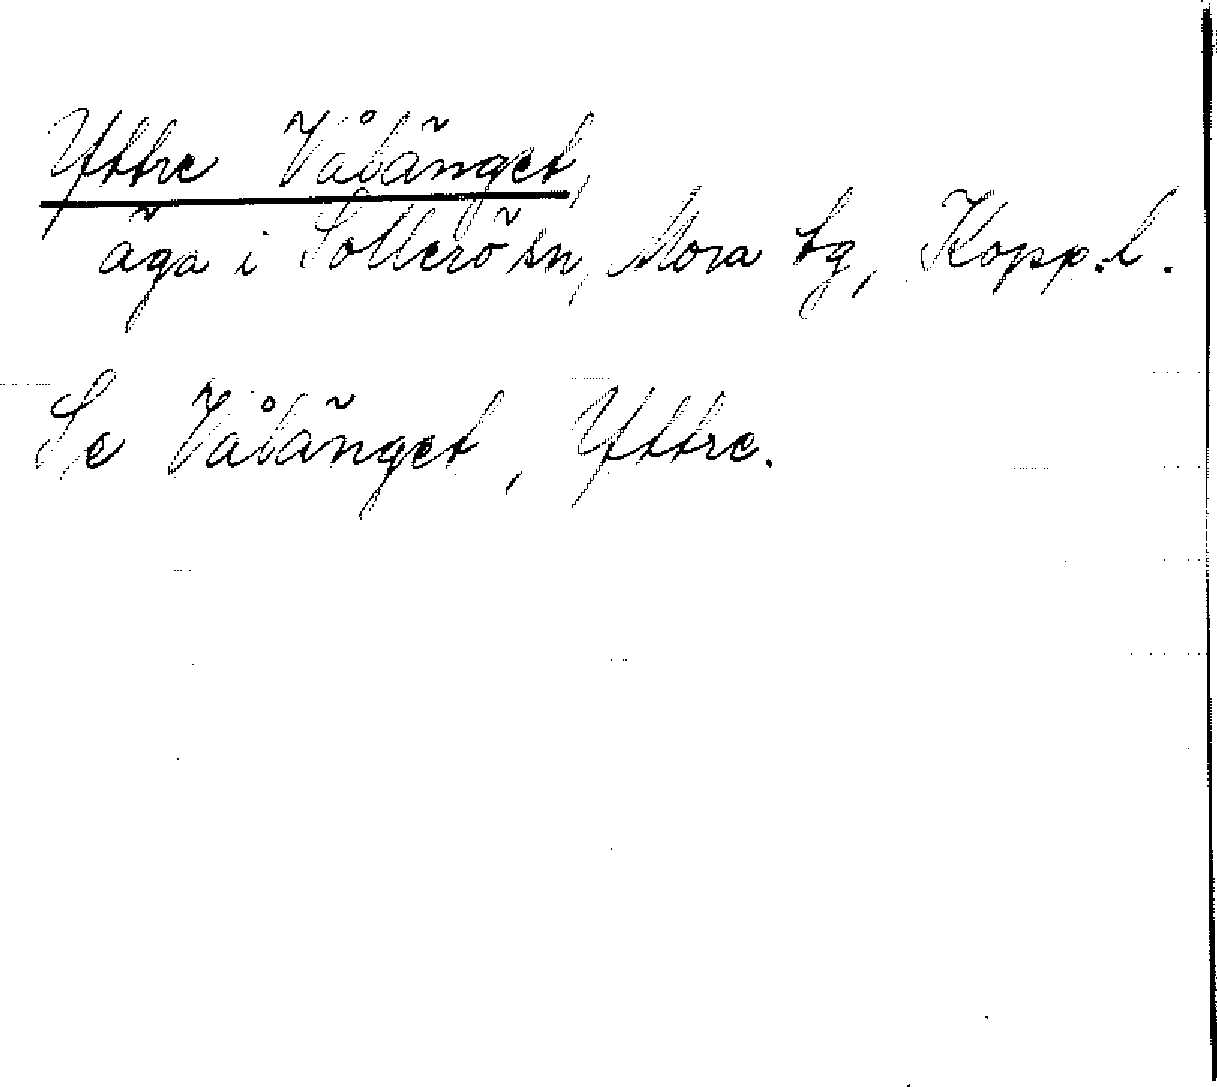 Yttre Våtänget,
äga i Sollerö sn, Mora tg, Kopp.l.
Se Våtänget, Yttre.